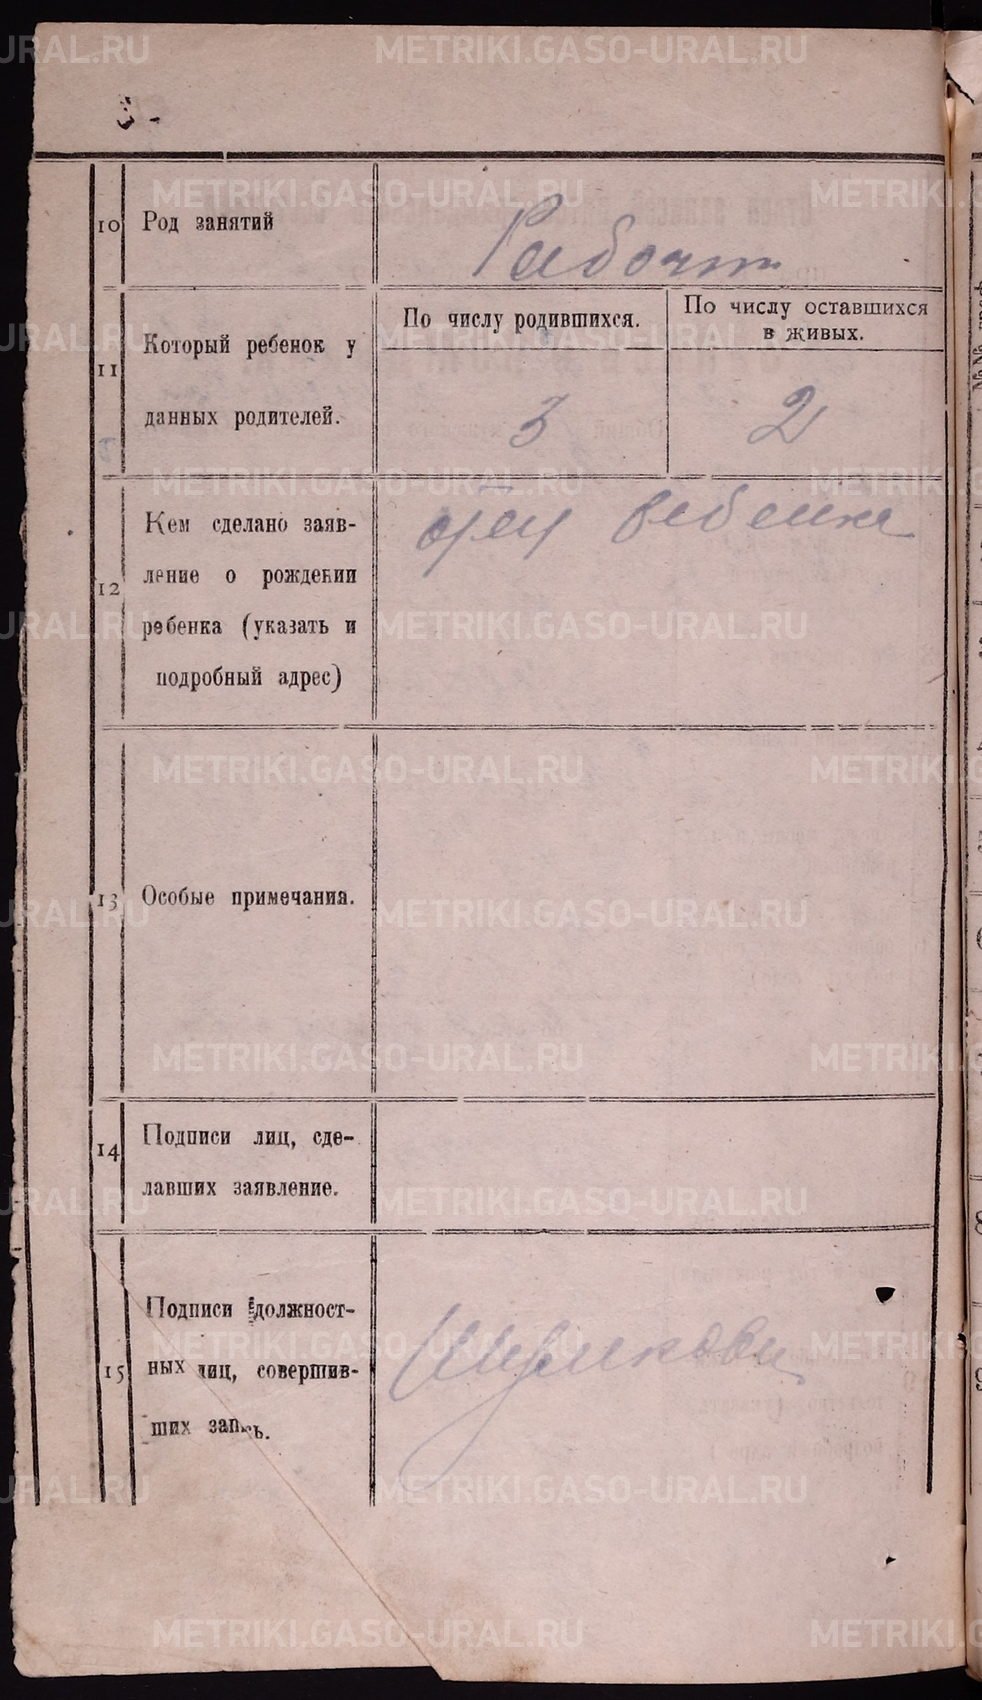 METRIKI.GASO-URAL.RU
10 Род занятий
По числу родившихся.
По числу оставшихся
в живых.
11 Который ребенок у
данных родителей.
3
2
12 Кем сделано заяв-
ление о рождении
ребенка (указать и
подробный адрес)
отец ребенка
13 Особые примечания.
14 Подписи лиц, сде-
лавших заявление.
15 Подписи должност-
ных лиц, совершив-
ших запись.